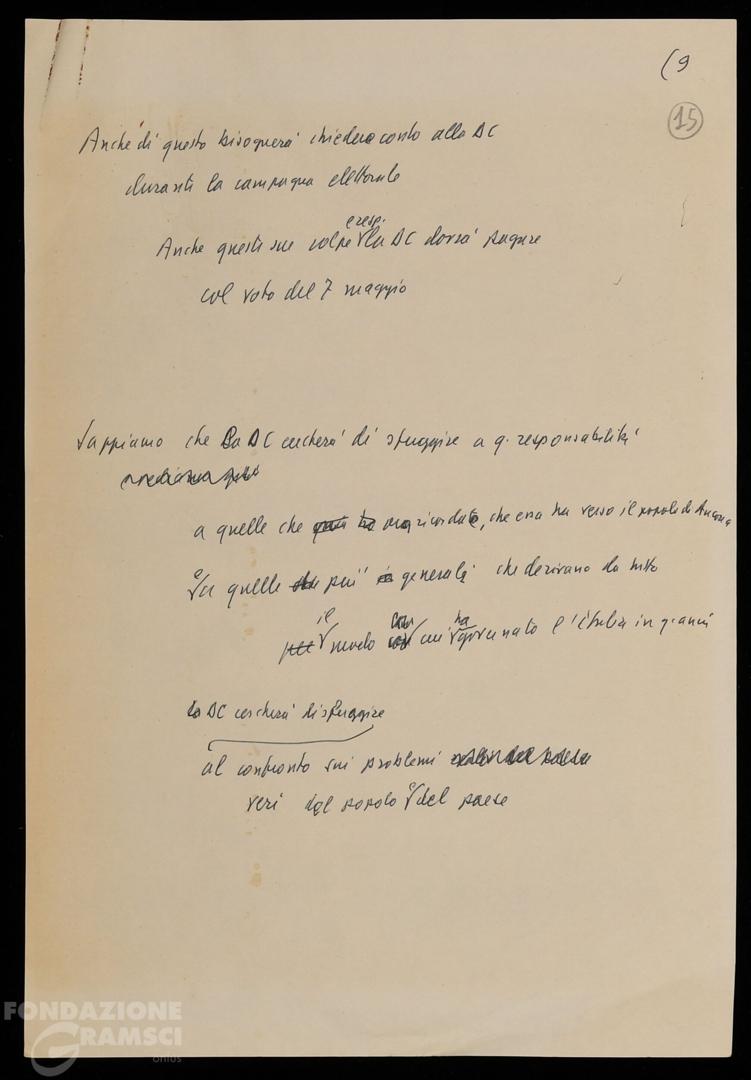 (9
15
Anche di questo bisognerà chiedere conto alla DC
durante la campagna elettorale
e resp.
Anche queste sue colpe la DC dovrà pagare
col voto del 7 maggio
Sappiamo che la DC cercherà di sfuggire a q. responsabilità
a quelle che ricordate, che essa ha verso il popolo di Ancona
e a quelle più generali che derivano da tutto
il con ha
modo cui governato l'Italia in q. anni
la DC cercherà di sfuggire
al confronto sui problemi
veri del popolo e del paese
FONDAZIONE
GRAMSCI
onlus